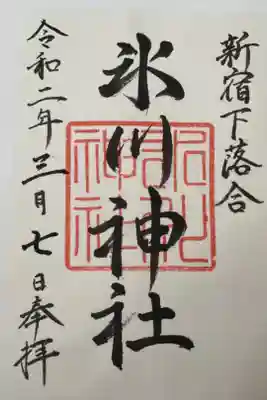 新宿下落合
氷川神社
氷川神社
令和二年三月七日奉拝